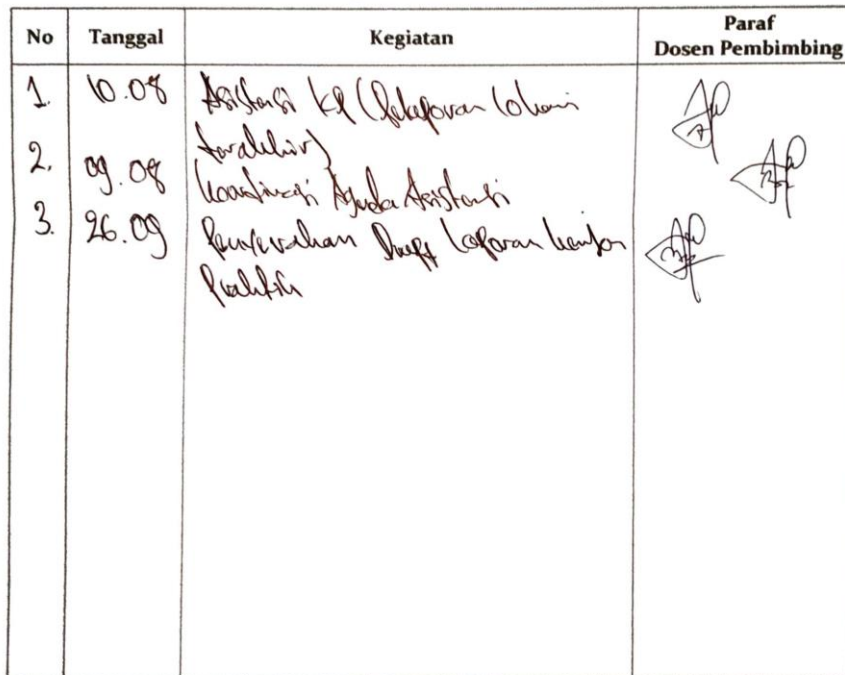 No Tanggal Kegiatan Paraf
Dosen Pembimbing
1. 10.08 Asistensi KP (Pelaporan lokasi
terakhir)
2. 09.08 Koordinasi Agenda Asistensi
3. 26.09 Penyerahan Draft Laporan
Praktik